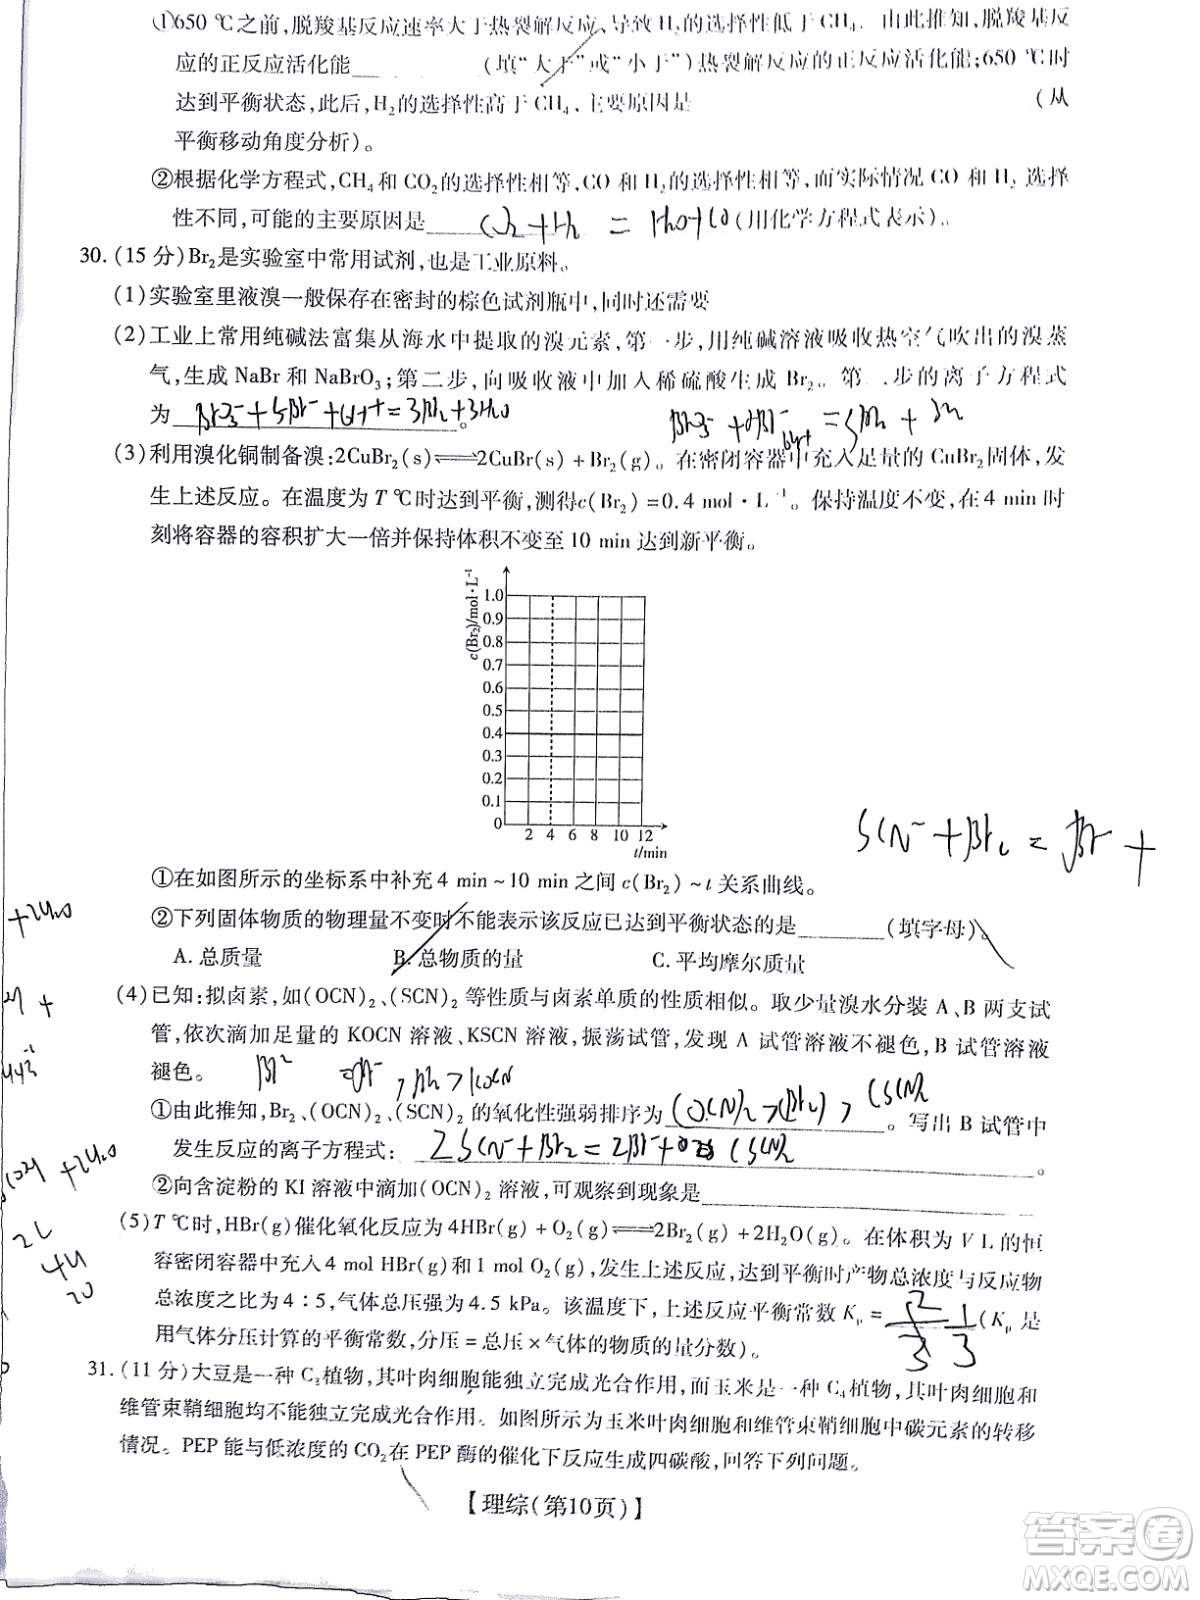 ①650 ℃之前,脱羧基反应速率大于热裂解反应,导致 H₂ 的选择性低于CH₄。由此推知,脱羧基反
应的正反应活化能________(填“大于”或“小于”)热裂解反应的正反应活化能;650 ℃时
达到平衡状态,此后,H₂的选择性高于CH₄,主要原因是 (从
平衡移动角度分析)。
②根据化学方程式,CH₄和CO₂的选择性相等,CO 和 H₂的选择性相等,而实际情况 CO 和 H₂ 选择
性不同,可能的主要原因是 CO₂+H₂ = H₂O+CO (用化学方程式表示)。
30. (15 分)Br₂是实验室中常用试剂,也是工业原料。
(1)实验室里液溴一般保存在密封的棕色试剂瓶中,同时还需要
(2)工业上常用纯碱法富集从海水中提取的溴元素,第一步,用纯碱溶液吸收热空气吹出的溴蒸
气,生成 NaBr 和 NaBrO₃;第二步,向吸收液中加入稀硫酸生成 Br₂。第二步的离子方程式
为 BrO₃⁻+5Br⁻+6H⁺=3Br₂+3H₂O。
(3)利用溴化铜制备溴:2CuBr₂(s)⇌2CuBr(s)+Br₂(g)。在密闭容器中充入足量的CuBr₂固体,发
生上述反应。在温度为 T ℃时达到平衡,测得c(Br₂)=0.4 mol·L⁻¹。保持温度不变,在 4 min 时
刻将容器的容积扩大一倍并保持体积不变至 10 min 达到新平衡。
c(Br₂)/mol·L⁻¹
1.0
0.9
0.8
0.7
0.6
0.5
0.4
0.3
0.2
0.1
0
2 4 6 8 10 12
t/min
SCN⁻+Br₂ = Br⁻ +
①在如图所示的坐标系中补充 4 min~10 min 之间 c(Br₂)~t 关系曲线。
②下列固体物质的物理量不变时不能表示该反应已达到平衡状态的是________(填字母)。
A. 总质量 B. 总物质的量 C. 平均摩尔质量
(4)已知:拟卤素,如(OCN)₂、(SCN)₂ 等性质与卤素单质的性质相似。取少量溴水分装 A、B 两支试
管,依次滴加足量的 KOCN 溶液、KSCN 溶液,振荡试管,发现 A 试管溶液不褪色,B 试管溶液
褪色。
①由此推知,Br₂、(OCN)₂、(SCN)₂ 的氧化性强弱排序为 (OCN)₂>(Br₂)>(SCN)₂。写出 B 试管中
发生反应的离子方程式: 2SCN⁻+Br₂=2Br⁻+ (SCN)₂。
②向含淀粉的 KI 溶液中滴加(OCN)₂ 溶液,可观察到现象是________
(5)T ℃时,HBr(g)催化氧化反应为4HBr(g)+O₂(g)⇌2Br₂(g)+2H₂O(g)。在体积为 V L 的恒
容密闭容器中充入4 mol HBr(g)和 1 mol O₂(g),发生上述反应,达到平衡时产物总浓度与反应物
总浓度之比为 4∶5,气体总压强为 4.5 kPa。该温度下,上述反应平衡常数 Kₚ= (Kₚ 是
用气体分压计算的平衡常数,分压=总压×气体的物质的量分数)。
31. (11 分)大豆是一种 C₃植物,其叶肉细胞能独立完成光合作用,而玉米是一种 C₄植物,其叶肉细胞和
维管束鞘细胞均不能独立完成光合作用。如图所示为玉米叶肉细胞和维管束鞘细胞中碳元素的转移
情况。PEP 能与低浓度的 CO₂在 PEP 酶的催化下反应生成四碳酸,回答下列问题。
【理综(第10页)】
答案卷
MXQE.COM